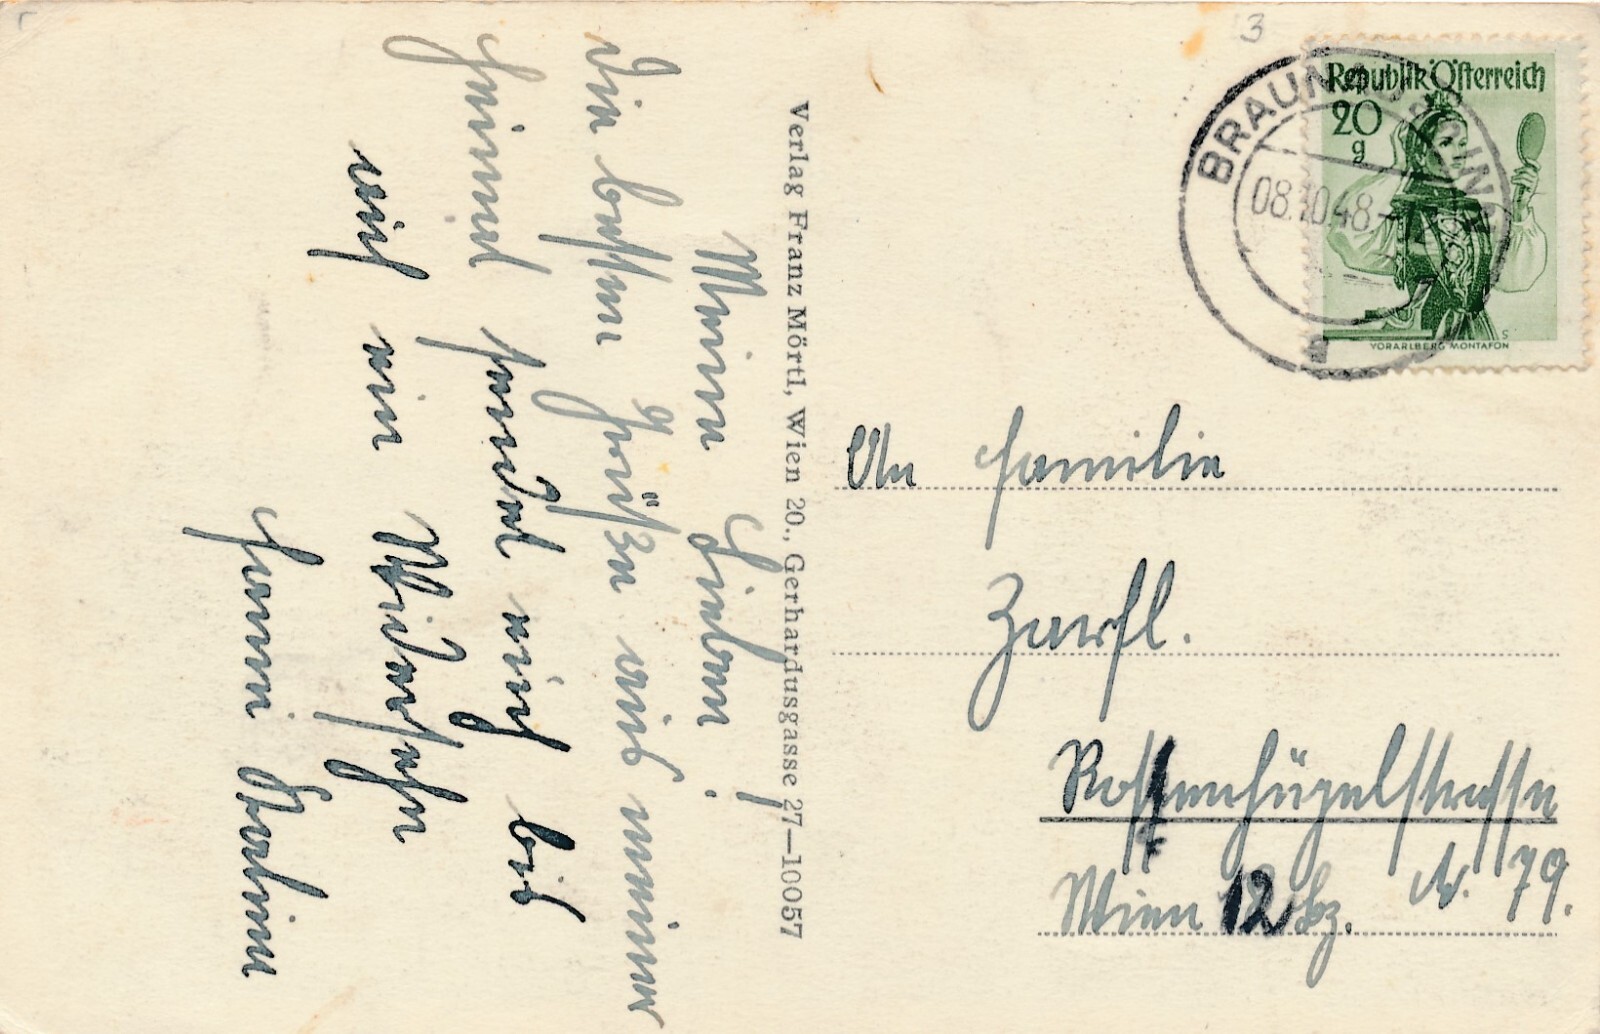 Meine Lieben!
Die besten Grüße aus meiner
Heimat sendet euch bis
auf ein Wiedersehn
Verlag Franz Mörtl, Wien 20., Gerhardusgasse 27—10057
3
Republik Österreich
20
g
VORARLBERG MONTAFON
BRAUNAU
08.10.48
a
An Familie
Rossenhügelstrasse
Wien 12 Bz. Nr. 79.